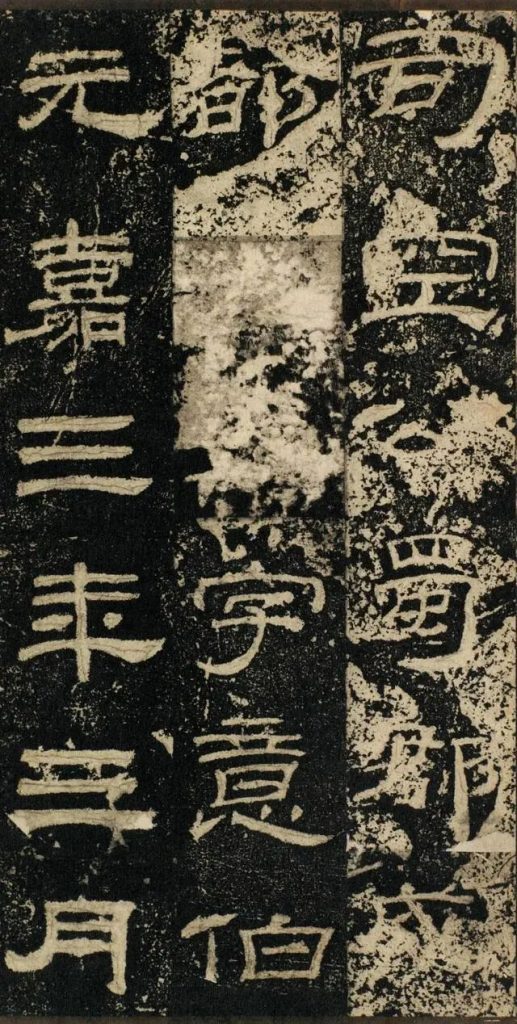 司空蜀郡成
都字意伯
元嘉三年三月